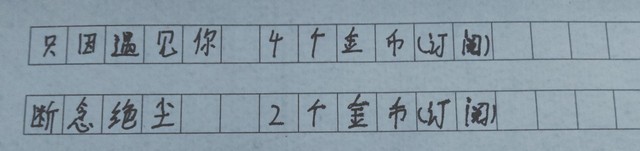 只因遇见你 4个金币(订阅)
断念绝尘 2个金币(订阅)